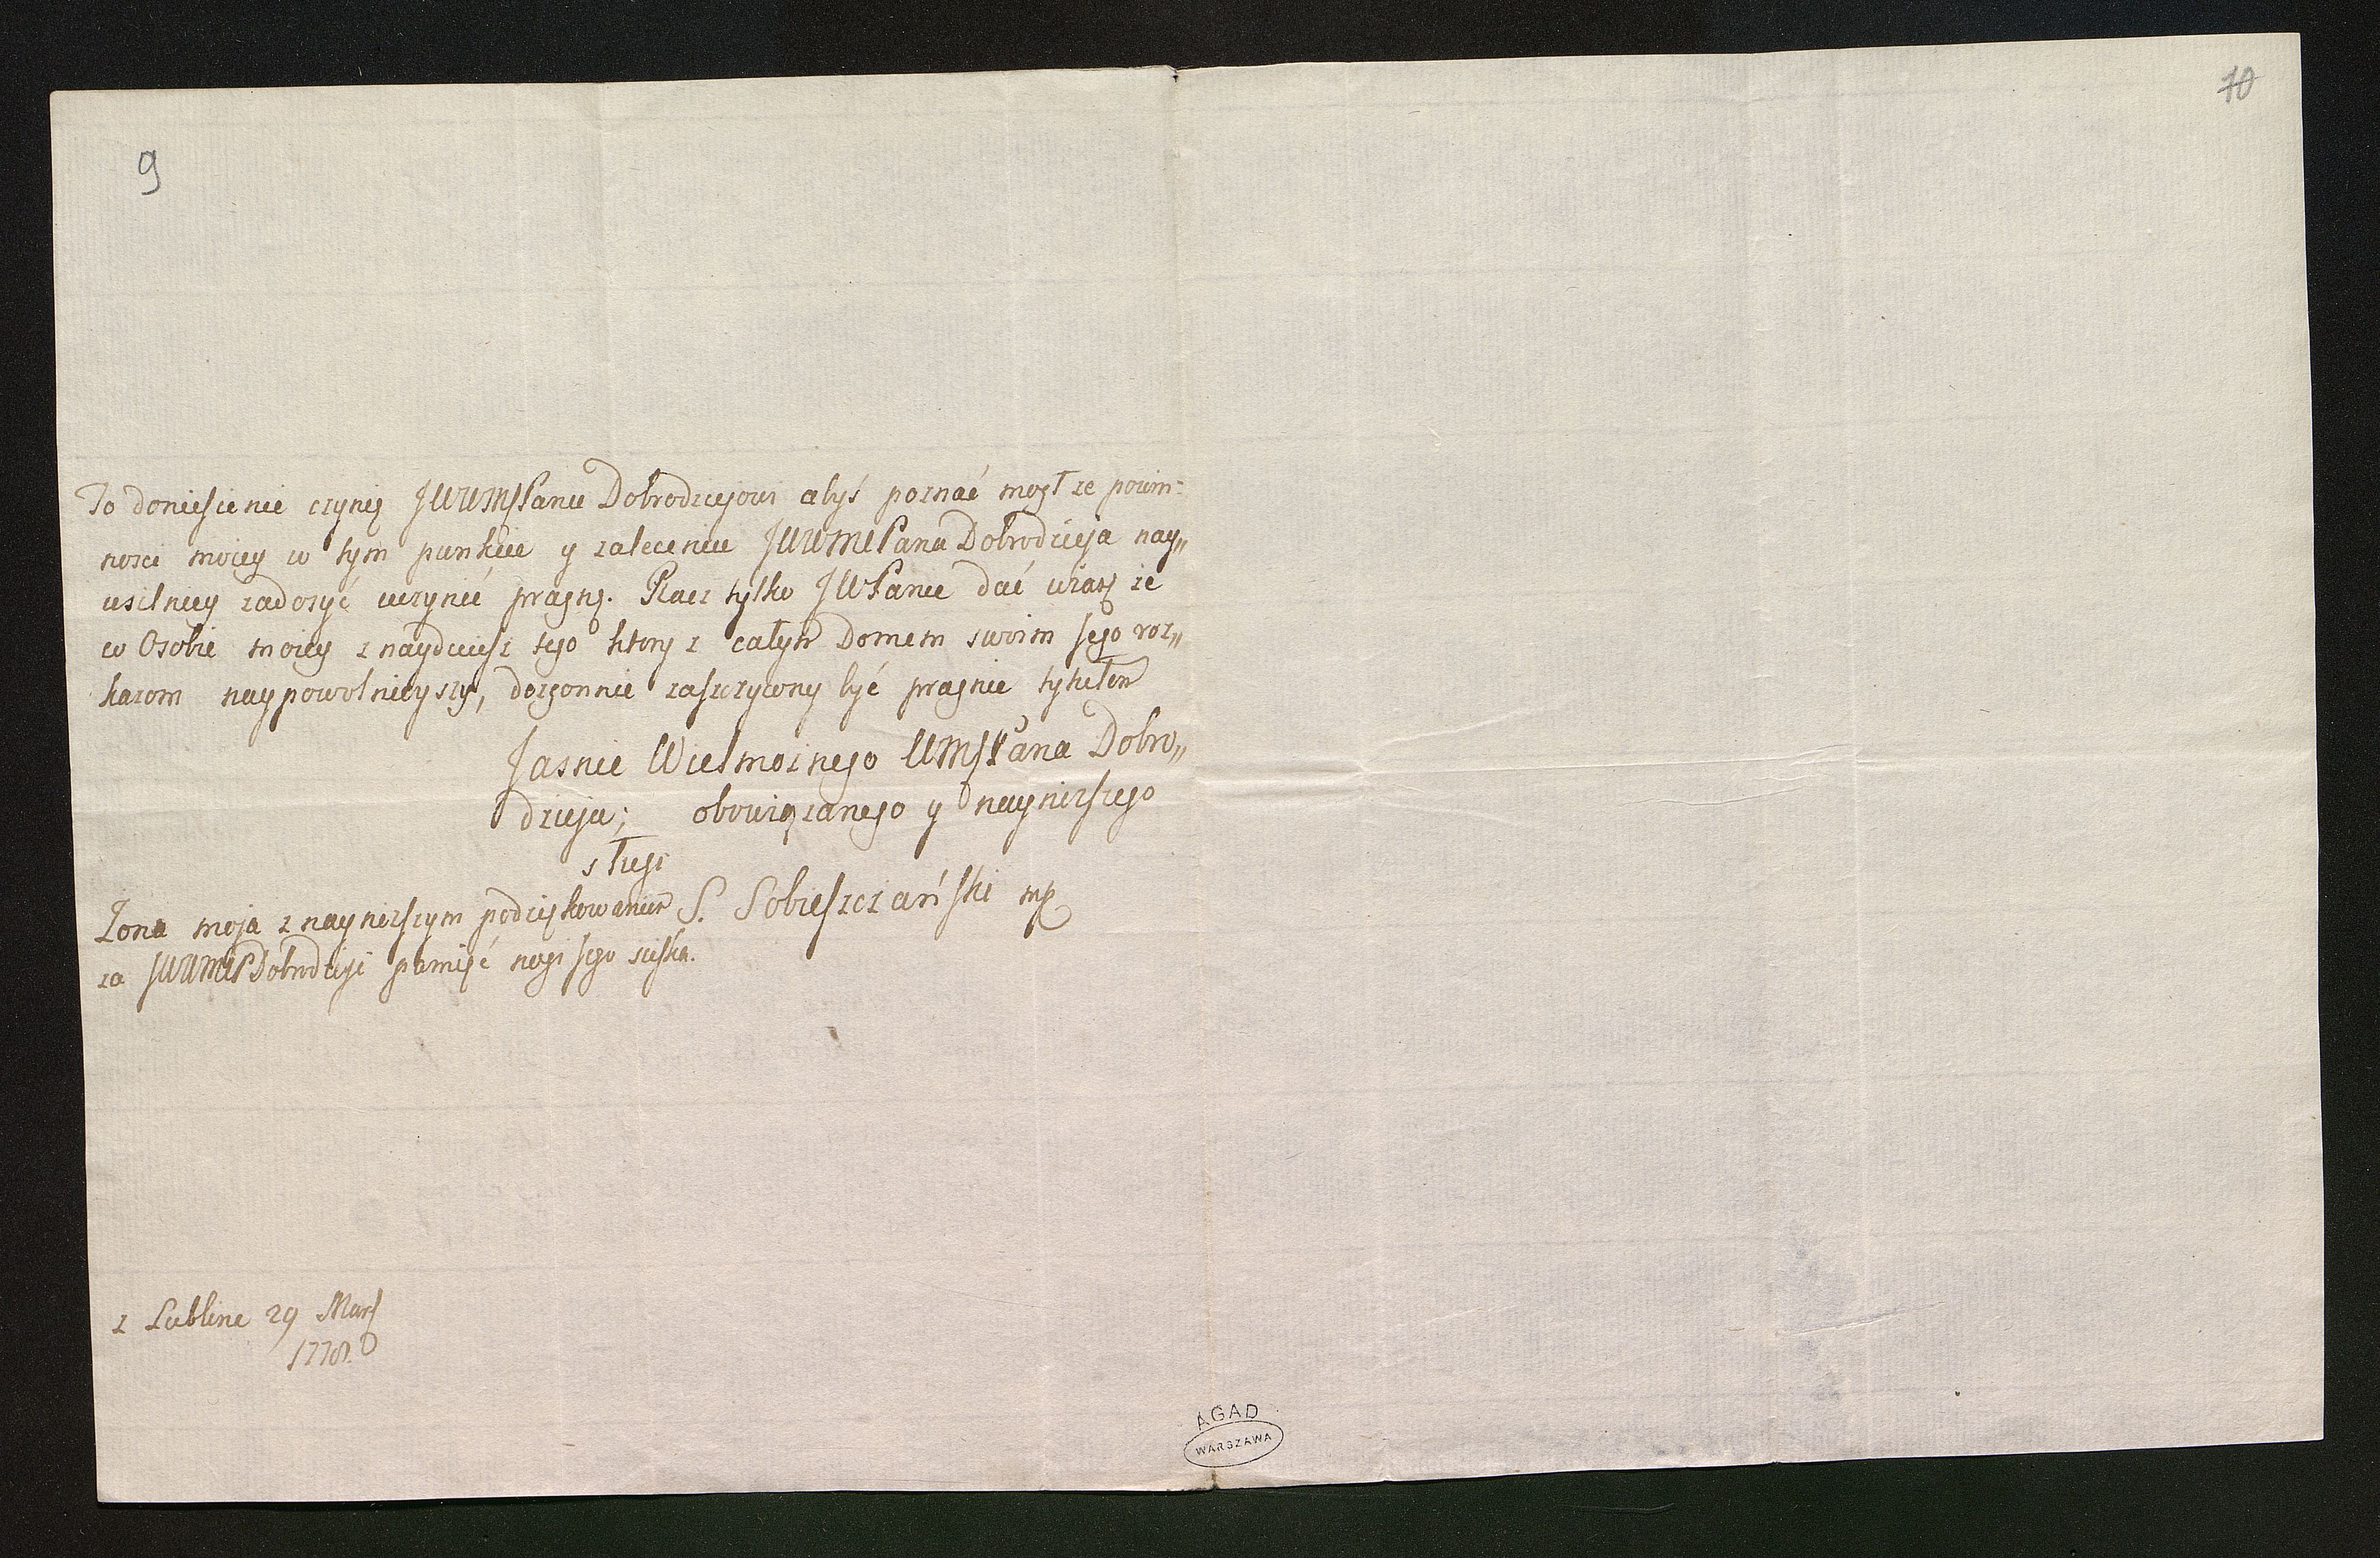 10
9
To doniesienie czynię JWWMsPanu Dobrodziejowi abyś poznać mogł ze powin=
nosci moiey w tym punkcie y zaleceniu JWWMPana Dobrodzieja nay„
usilniey zadosyć uczynić pragnę. Racz tylko JWPanie dać wiarę ze
w Osobie moiey znaydziesz tego ktory z całym Domem swoim Jego roz„
kazom naypowolnieyszy, dozgonnie zaszczycony być pragnie tytułem
Jasnie Wielmoznego WMsPana Dobro„
dzieja; obowiązanego y nayniższego
sługi
S. Sobieszczański mp
Zona moja z nayniższym podziękowaniem
za JWWMP Dobrodzieja pamięć nogi Jego sciska.
z Lublina 29 Mar
1778.
AGAD
WARSZAWA